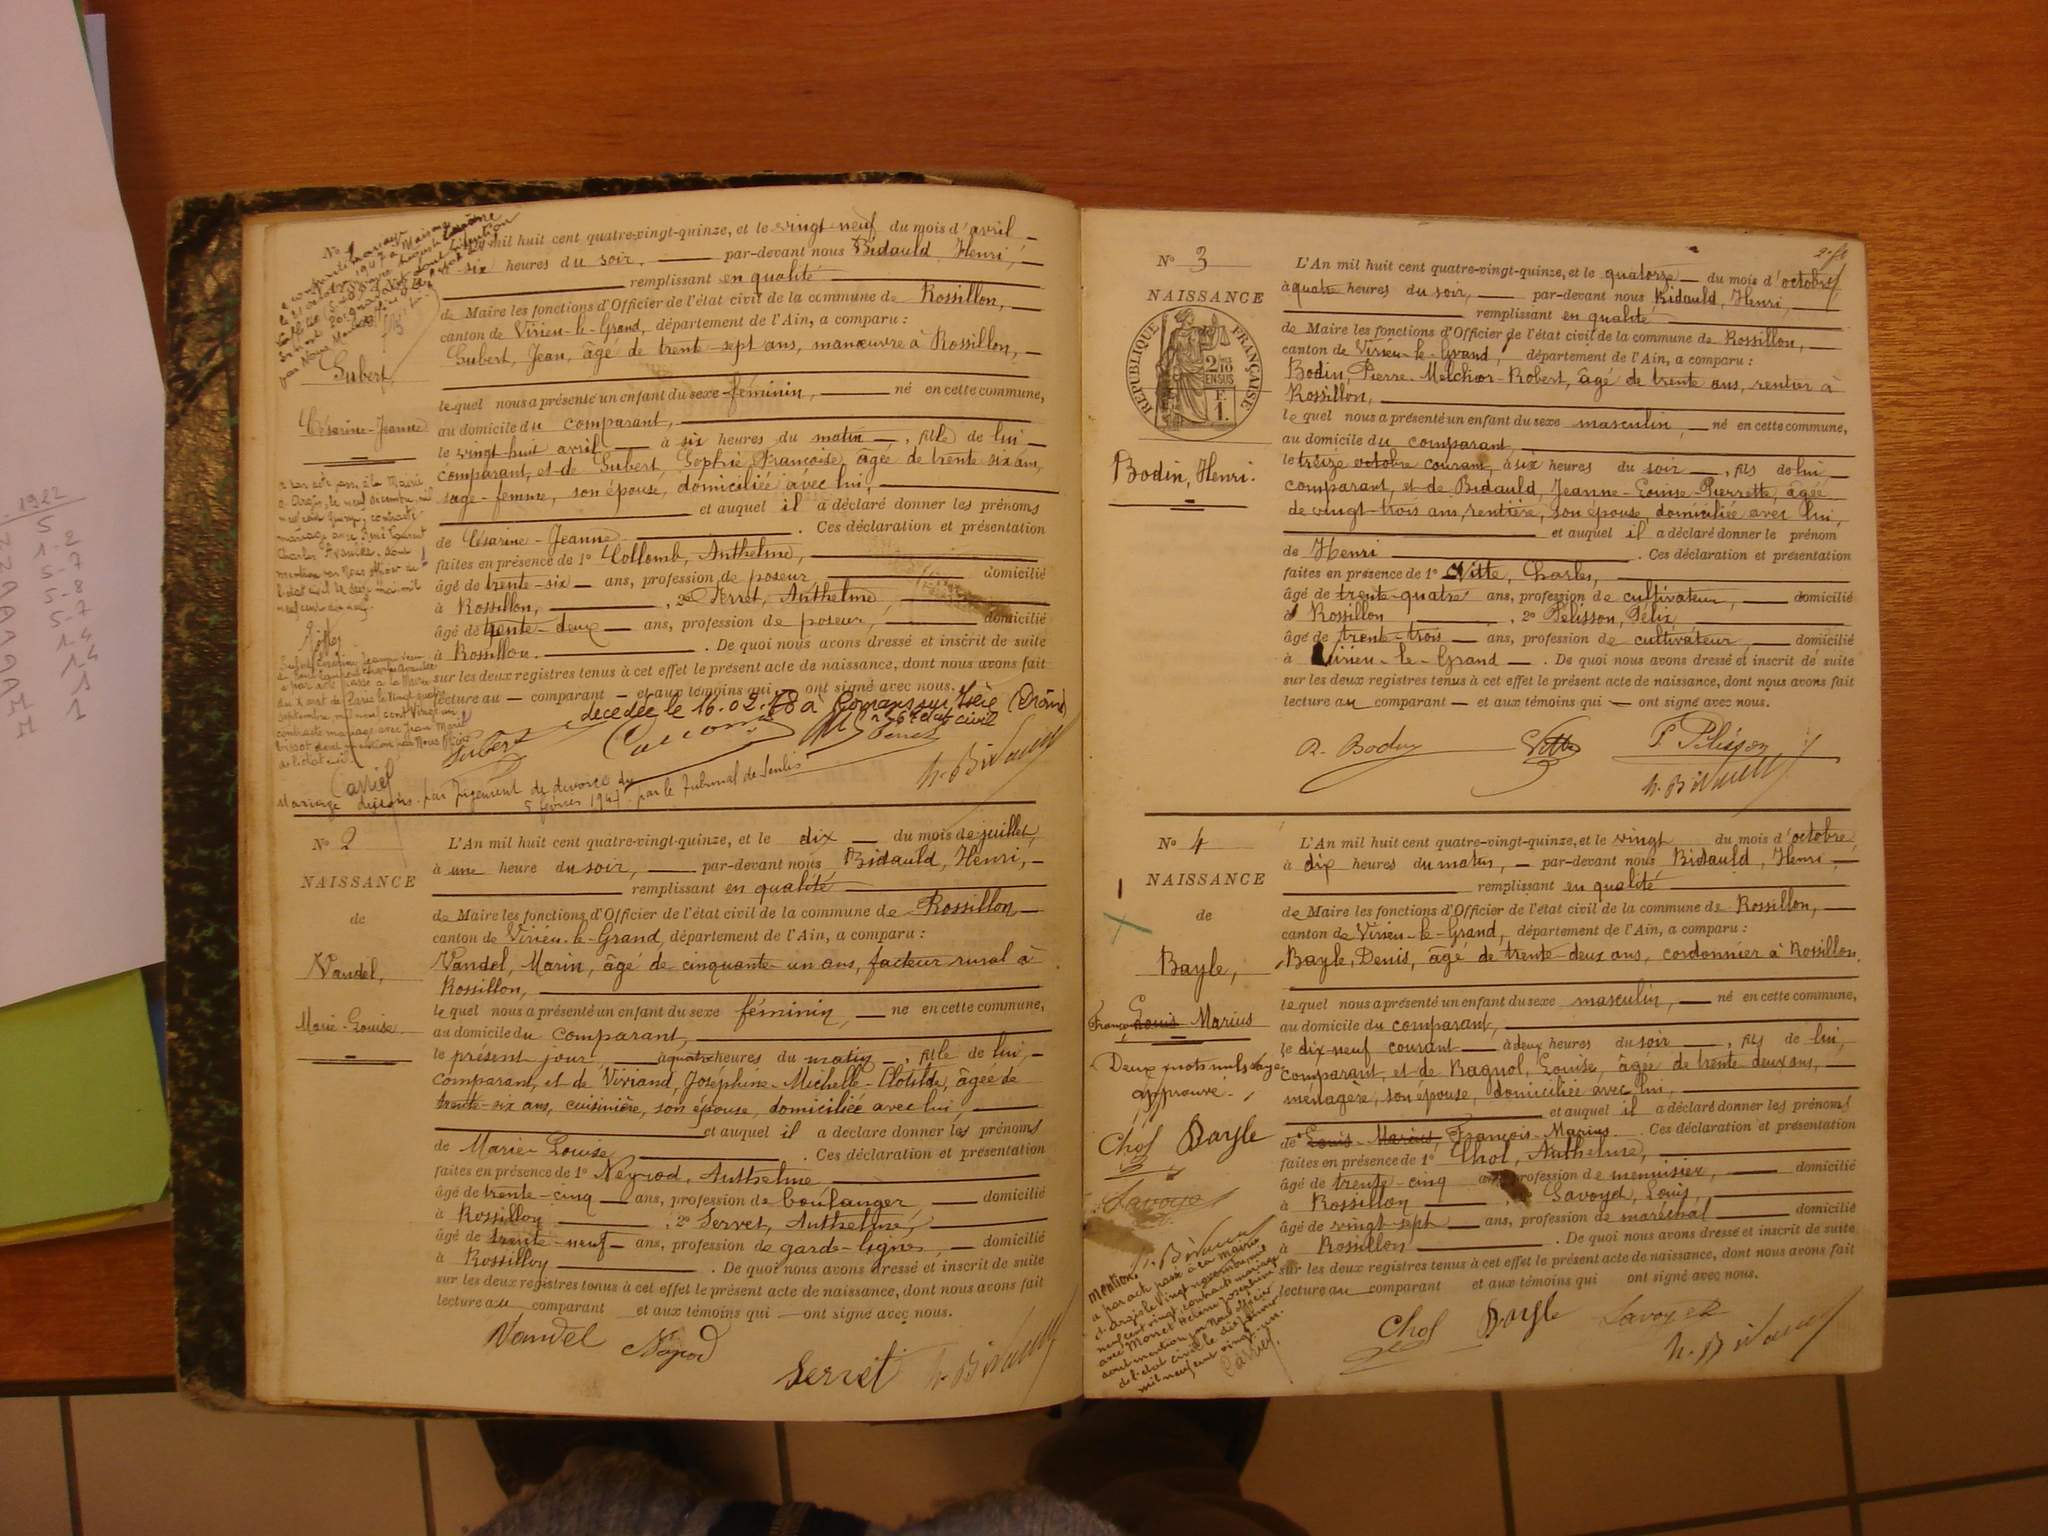 1922
5
1-2
5-7
5-8
5-7
1-4
1-4
1
1
1
No 1
mil huit cent quatre-vingt-quinze, et le vingt-neuf du mois d'avril
six heures du soir, par-devant nous Bidauld, Henri,
remplissant en qualité
de Maire les fonctions d'Officier de l'état civil de la commune de Rossillon,
canton de Virieu-le-Grand, département de l'Ain, a comparu :
Gubert, Jean, âgé de trente-sept ans, manœuvre à Rossillon,
Gubert,
Césarine-Jeanne
lequel nous a présenté un enfant du sexe féminin, né en cette commune,
au domicile du comparant,
le vingt-huit avril à six heures du matin, fille de lui
comparant, et de Gubert, Sophie Françoise, âgée de trente six ans,
sage-femme, son épouse, domiciliée avec lui,
et auquel il a déclaré donner les prénoms
de Césarine-Jeanne. Ces déclaration et présentation
faites en présence de 1° Collomb, Anthelme,
âgé de trente-six ans, profession de poseur domicilié
à Rossillon, 2° Perret, Anthelme,
âgé de trente-deux ans, profession de poseur, domicilié
à Rossillon. De quoi nous avons dressé et inscrit de suite
sur les deux registres tenus à cet effet le présent acte de naissance, dont nous avons fait
lecture au comparant et aux témoins qui ont signé avec nous.
décédée le 16.02.78 à Romans sur Isère (Drôme)
état civil
Gubert
H. Bidauld
Mariage dissous par jugement de divorce du
5 février 1947 par le Tribunal de Senlis
No 2
NAISSANCE
de
Vandel,
Marie-Louise
L'An mil huit cent quatre-vingt-quinze, et le dix du mois de juillet,
à une heure du soir, par-devant nous Bidauld, Henri,
remplissant en qualité
de Maire les fonctions d'Officier de l'état civil de la commune de Rossillon
canton de Virieu-le-Grand, département de l'Ain, a comparu :
Vandel, Marin, âgé de cinquante-un ans, facteur rural à
Rossillon,
lequel nous a présenté un enfant du sexe féminin, né en cette commune,
au domicile du comparant,
le présent jour, à quatre heures du matin, fille de lui,
comparant, et de Viviand, Joséphine-Michelle-Clotilde, âgée de
trente-six ans, cuisinière, son épouse, domiciliée avec lui,
et auquel il a déclaré donner les prénoms
de Marie-Louise. Ces déclaration et présentation
faites en présence de 1° Neyrod, Anthelme
âgé de trente-cinq ans, profession de boulanger, domicilié
à Rossillon, 2° Servet, Anthelme,
âgé de trente-neuf ans, profession de garde-ligne, domicilié
à Rossillon. De quoi nous avons dressé et inscrit de suite
sur les deux registres tenus à cet effet le présent acte de naissance, dont nous avons fait
lecture au comparant et aux témoins qui ont signé avec nous.
Vandel Neyrod
Servet H. Bidauld
No 3
NAISSANCE
RÉPUBLIQUE FRANÇAISE
2/10 EN SUS
F. 1.
Bodin, Henri.
L'An mil huit cent quatre-vingt-quinze, et le quatorze du mois d'octobre
à quatre heures du soir, par-devant nous Bidauld, Henri,
remplissant en qualité
de Maire les fonctions d'Officier de l'état civil de la commune de Rossillon,
canton de Virieu-le-Grand, département de l'Ain, a comparu :
Bodin, Pierre-Melchior-Robert, âgé de trente ans, rentier à
Rossillon,
lequel nous a présenté un enfant du sexe masculin, né en cette commune,
au domicile du comparant
le treize octobre courant, à six heures du soir, fils de lui
comparant, et de Bidauld, Jeanne-Louise-Pierrette, âgée
de vingt-trois ans, rentière, son épouse, domiciliée avec lui,
et auquel il a déclaré donner le prénom
de Henri. Ces déclaration et présentation
faites en présence de 1° Vitte, Charles,
âgé de trente-quatre ans, profession de cultivateur, domicilié
à Rossillon, 2° Pélisson, Félix
âgé de trente-trois ans, profession de cultivateur, domicilié
à Virieu-le-Grand. De quoi nous avons dressé et inscrit de suite
sur les deux registres tenus à cet effet le présent acte de naissance, dont nous avons fait
lecture au comparant et aux témoins qui ont signé avec nous.
R. Bodin Vitte F. Pélisson
H. Bidauld
No 4
NAISSANCE
de
Bayle,
François Louis Marius
Deux mots nuls rayés
approuvé.
Chol Bayle
Savoye
H. Bidauld
L'An mil huit cent quatre-vingt-quinze, et le vingt du mois d'octobre,
à dix heures du matin, par-devant nous Bidauld, Henri
remplissant en qualité
de Maire les fonctions d'Officier de l'état civil de la commune de Rossillon,
canton de Virieu-le-Grand, département de l'Ain, a comparu :
Bayle, Denis, âgé de trente-deux ans, cordonnier à Rossillon.
lequel nous a présenté un enfant du sexe masculin, né en cette commune,
au domicile du comparant,
le dix-neuf courant à deux heures du soir, fils de lui,
comparant, et de Bagnol, Louise, âgée de trente deux ans,
ménagère, son épouse, domiciliée avec lui,
et auquel il a déclaré donner les prénoms
de Louis-Marius, François-Marius. Ces déclaration et présentation
faites en présence de 1° Chol, Anthelme,
âgé de trente-cinq ans, profession de menuisier, domicilié
à Rossillon, Savoye, Louis,
âgé de vingt-sept ans, profession de maréchal domicilié
à Rossillon. De quoi nous avons dressé et inscrit de suite
sur les deux registres tenus à cet effet le présent acte de naissance, dont nous avons fait
lecture au comparant et aux témoins qui ont signé avec nous.
Chol Bayle Savoye
H. Bidauld
Mention.
a par acte passé à la Mairie
d' le vingt novembre mil
neuf cent vingt, contracté mariage
avec Monet Hélène Joséphine
dont mention par Nous officier
de l'état civil le
mil neuf cent vingt-un.